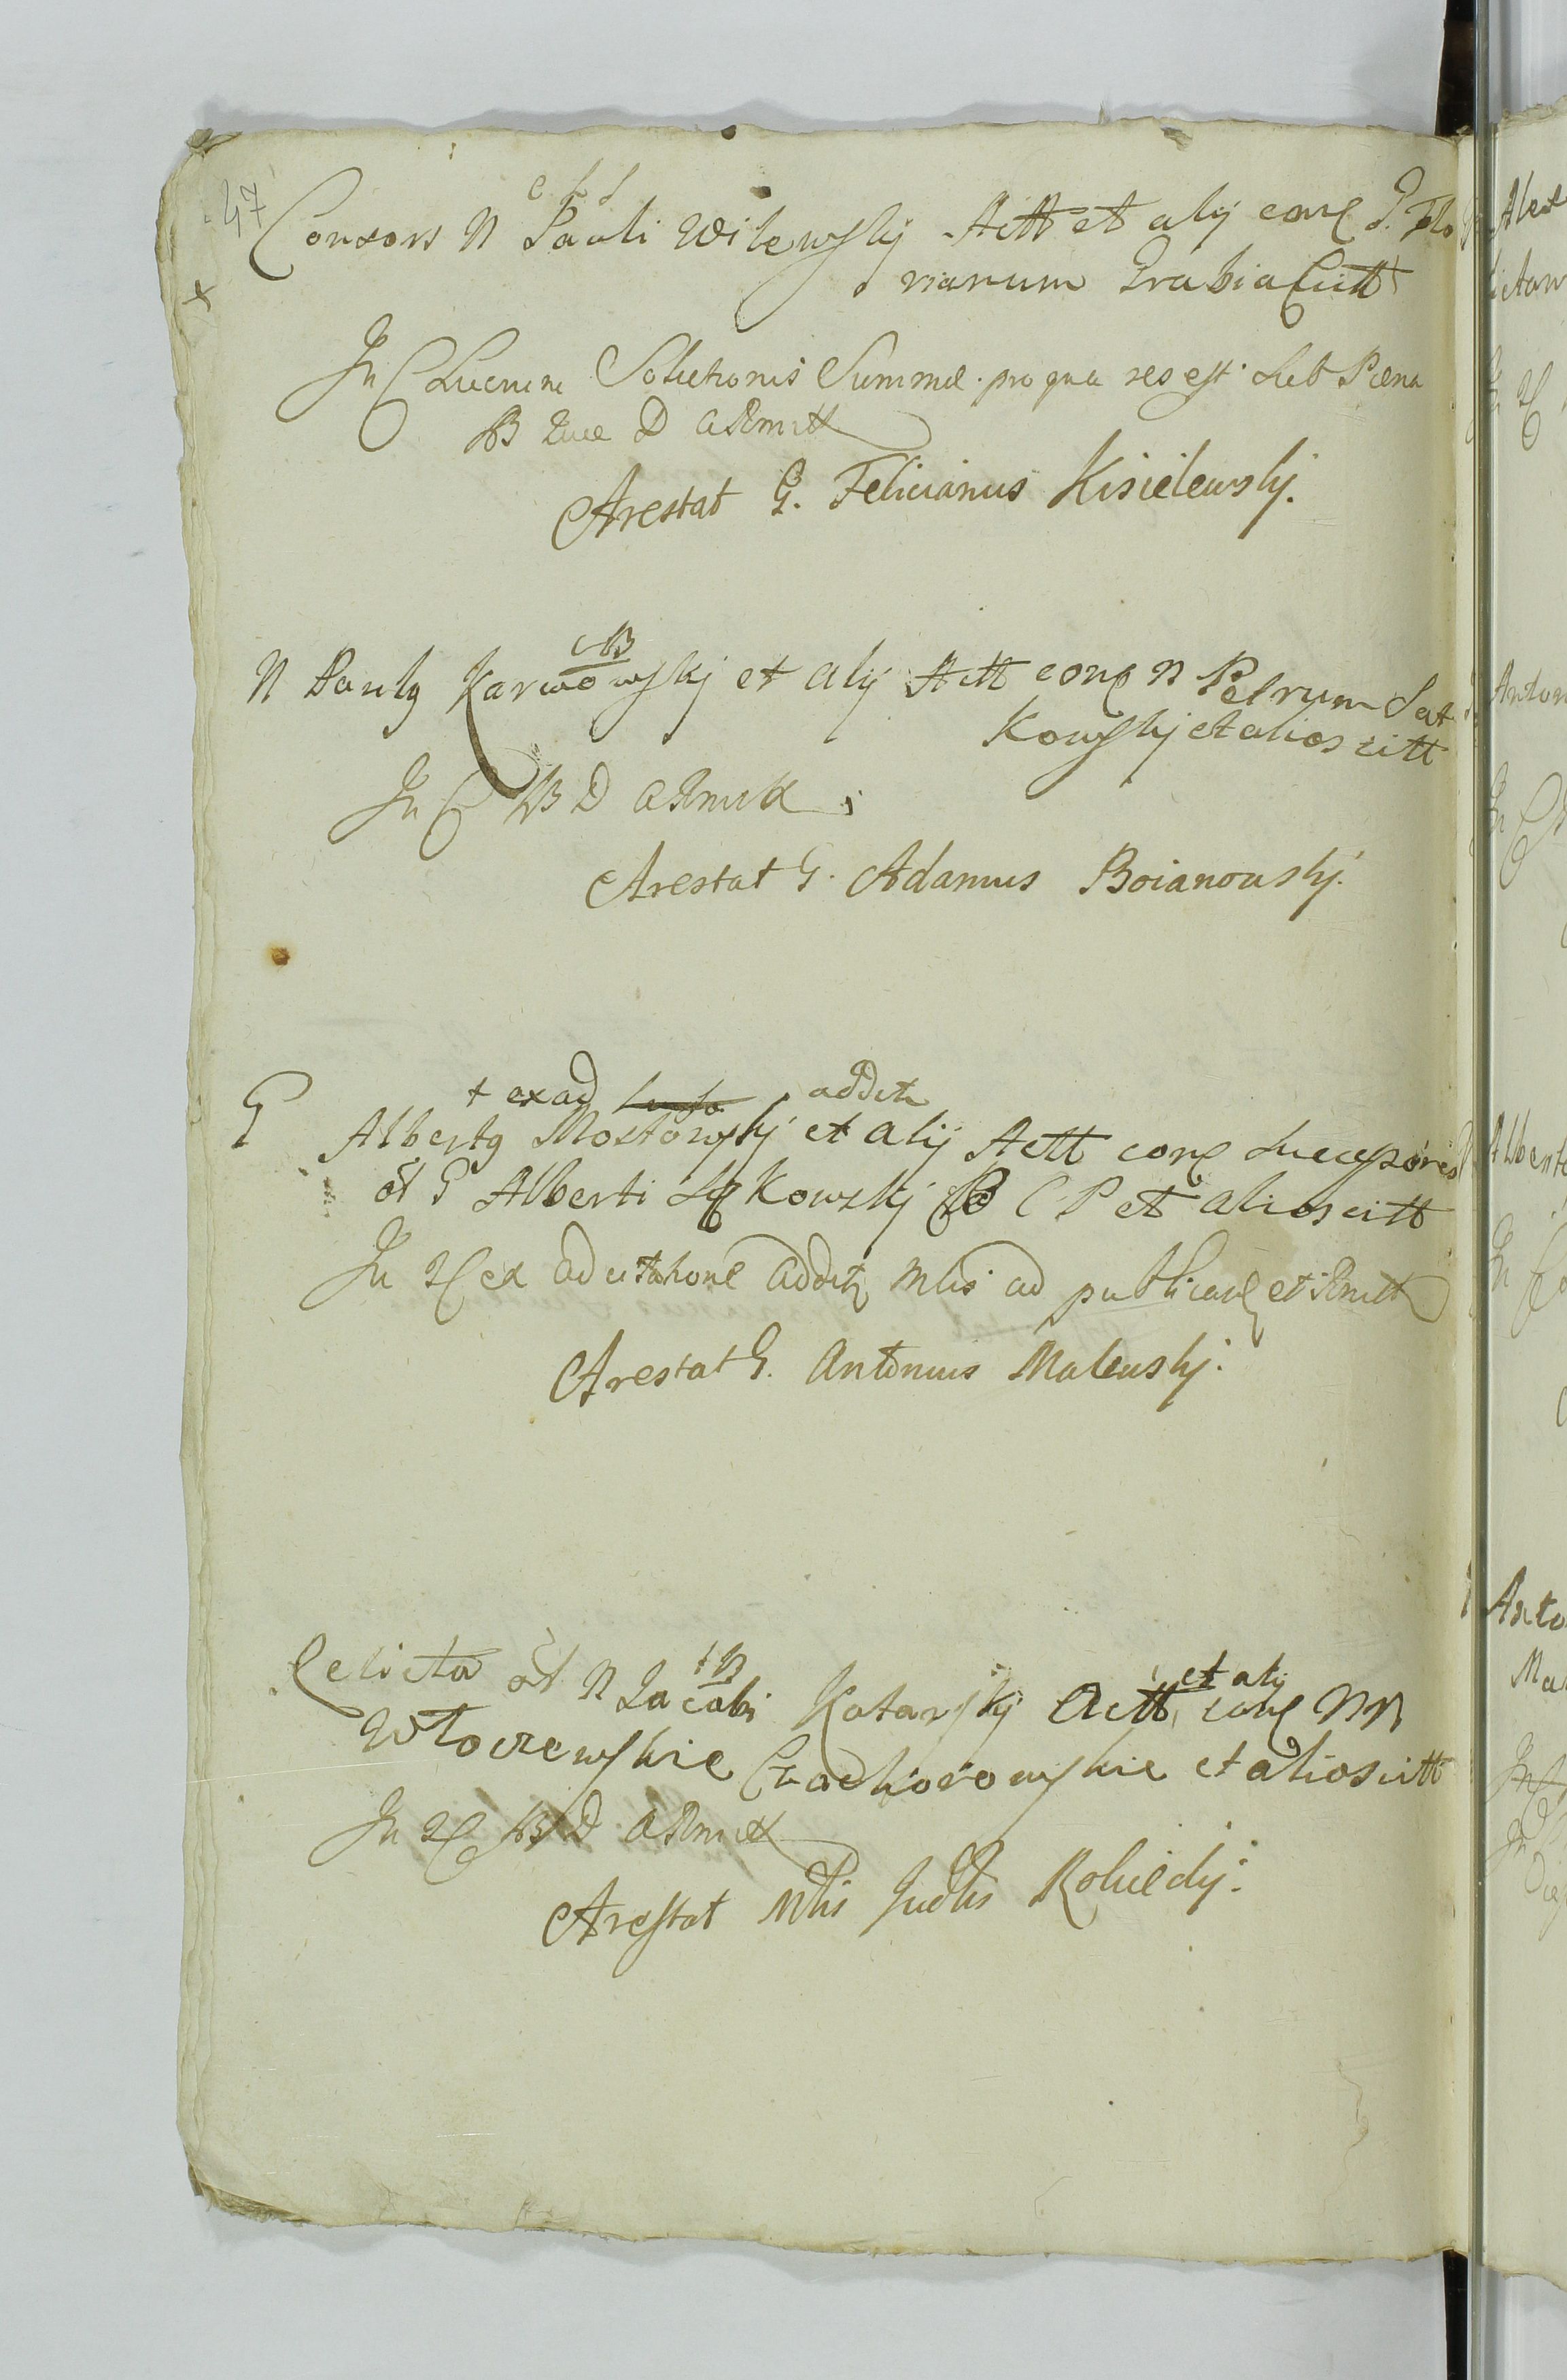 47
Consors N Pauli Wilewskij Actt et alij conc G. Flo
rianum Grabia Citt
In C Lucrum Solutionis Summæ pro qua res est Sub Pæna
B D a Rmitt
Arestat G. Felicianus Kisielewskj.
N Paulg Karwowskj et alij Actt conc N Petrum Sat
Kowskj et alios citt
In C B D a Rmitt
Arestat G. Adamus Boianouskj.
+ ex ad addit
G Albertg Mostowskj et alij Actt conc Successores
ol G Alberti Kowskj C P et alios citt
In ex ad citatione addit Mlis ad public et Rmitt
Arestat G. Antonius Maleuskj.
et alij
Relicta ol N Jacobi Kotarskj Actt conc NN
Wtoczewskie Czachorowskie et alios citt
In B D a Rmitt
Arestat Mlis Judlis